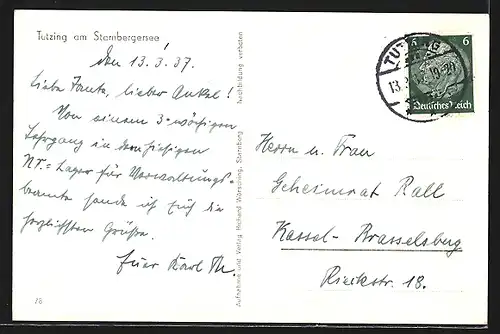 Tutzing am Starnbergersee
den 13.3.37.
Liebe Tante, lieber Onkel!
Von einem 3-wöchigen
Lehrgang in dem hiesigen
NS.-Lager für Verwaltungs-
beamte sende ich Euch die
herzlichsten Grüße.
Euer Karl Th.
76
Aufnahme und Verlag Richard Wörsching, Starnberg
Nachbildung verboten
TUTZING
13.3.37.19-20
6 6
Deutsches Reich
Herrn u. Frau
Geheimrat Rall
Kassel-Brasselsberg
Rieckstr. 18.